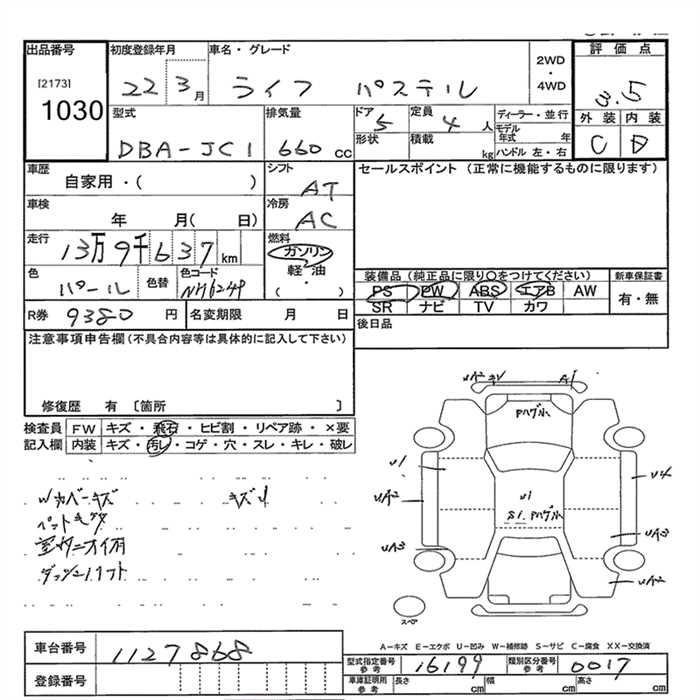 出品番号 初度登録年月 車名・グレード 2WD ・ 4WD 評価点
[2173]
1030 22 3月 ライフ パステル 3.5
型式 排気量 ドア 定員 ディーラー・並行 外装 内装
DBA-JC1 660cc 5 4人 モデル年式 年 C D
形状 積載 kg ハンドル 左・右
車歴 シフト セールスポイント(正常に機能するものに限ります)
自家用・( ) AT
車検 冷房
年 月( 日) AC
走行 燃料
13万9千637km ガソリン
軽・油
( ・ )
色 色替 色コード 装備品(純正品に限り〇をつけてください) 新車保証書
パール NH624P PS PW ABS エアB AW 有・無
SR ナビ TV カワ
R券 9380円 名変期限 月 日 後日品
注意事項申告欄(不具合内容等は具体的に記入して下さい)
修復歴 有 〔箇所 〕
検査員 FW キズ・飛石・ヒビ割・リペア跡・×要
記入欄 内装 キズ・汚レ・コゲ・穴・スレ・キレ・破レ
Wカバーキズ キズ小
ペット毛
室内ニオイ有
ダッシュリフト
A1
Pハゲ小
U1 U4
UA2
U1
S1. Pハゲ小
UA3 UA3
UA2
スペア
A-キズ E-エクボ U-凹み W-補修跡 S-サビ C-腐食 XX-交換済
車台番号 1127868
型式指定番号 参考 16199 類別区分番号 参考 0017
登録番号 車庫証明用 参考 長さ cm 幅 cm 高さ cm